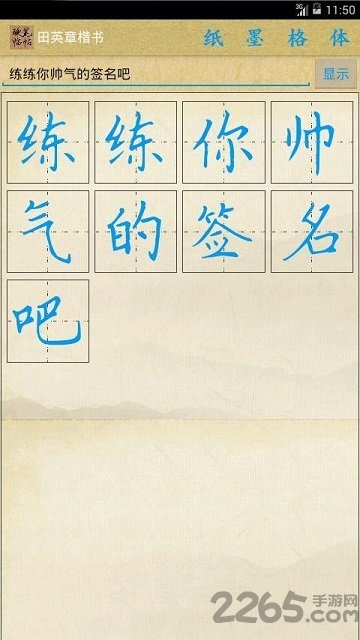 3G 11:50
硬笔临帖 田英章楷书 纸 墨 格 体
练练你帅气的签名吧 显示
练练你帅
气的签名
吧
2265手游网
.com